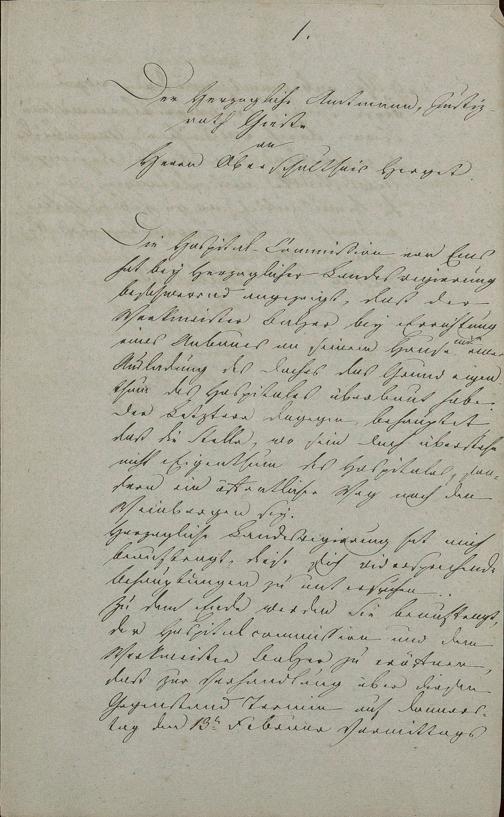 1.
Der Herzogliche Amtmann, Justiz-
rath Thieste
an
Herrn Oberschultheis Herget.
Die Hospital-Commission von Ems
hat bey Herzoglicher Landesregierung
beschwerend angezeigt, daß der
Werkmeister Balzer bey Errichtung
eines Anbaues an seinem Hause mit einer
Ausladung des Daches das Grund eigen
thum des Hospitales überbaut habe.
Der Letztere dagegen behauptet,
daß die Stelle, wo sein Dach überstehe
nicht Eigenthum des Hospitales, son-
dern ein öffentlicher Weg nach den
Weinbergen sey.
Herzogliche Landesregierung hat mich
beauftragt, diese sich widersprechende
Behauptungen zu untersuchen.
Zu dem Ende werden sie beauftragt,
der Hospitalcommission und dem
Werkmeister Balzer zu eröffnen,
daß zur Verhandlung über diesen
Gegenstand Termin auf Donners-
tag den 13n Februar Vormittags